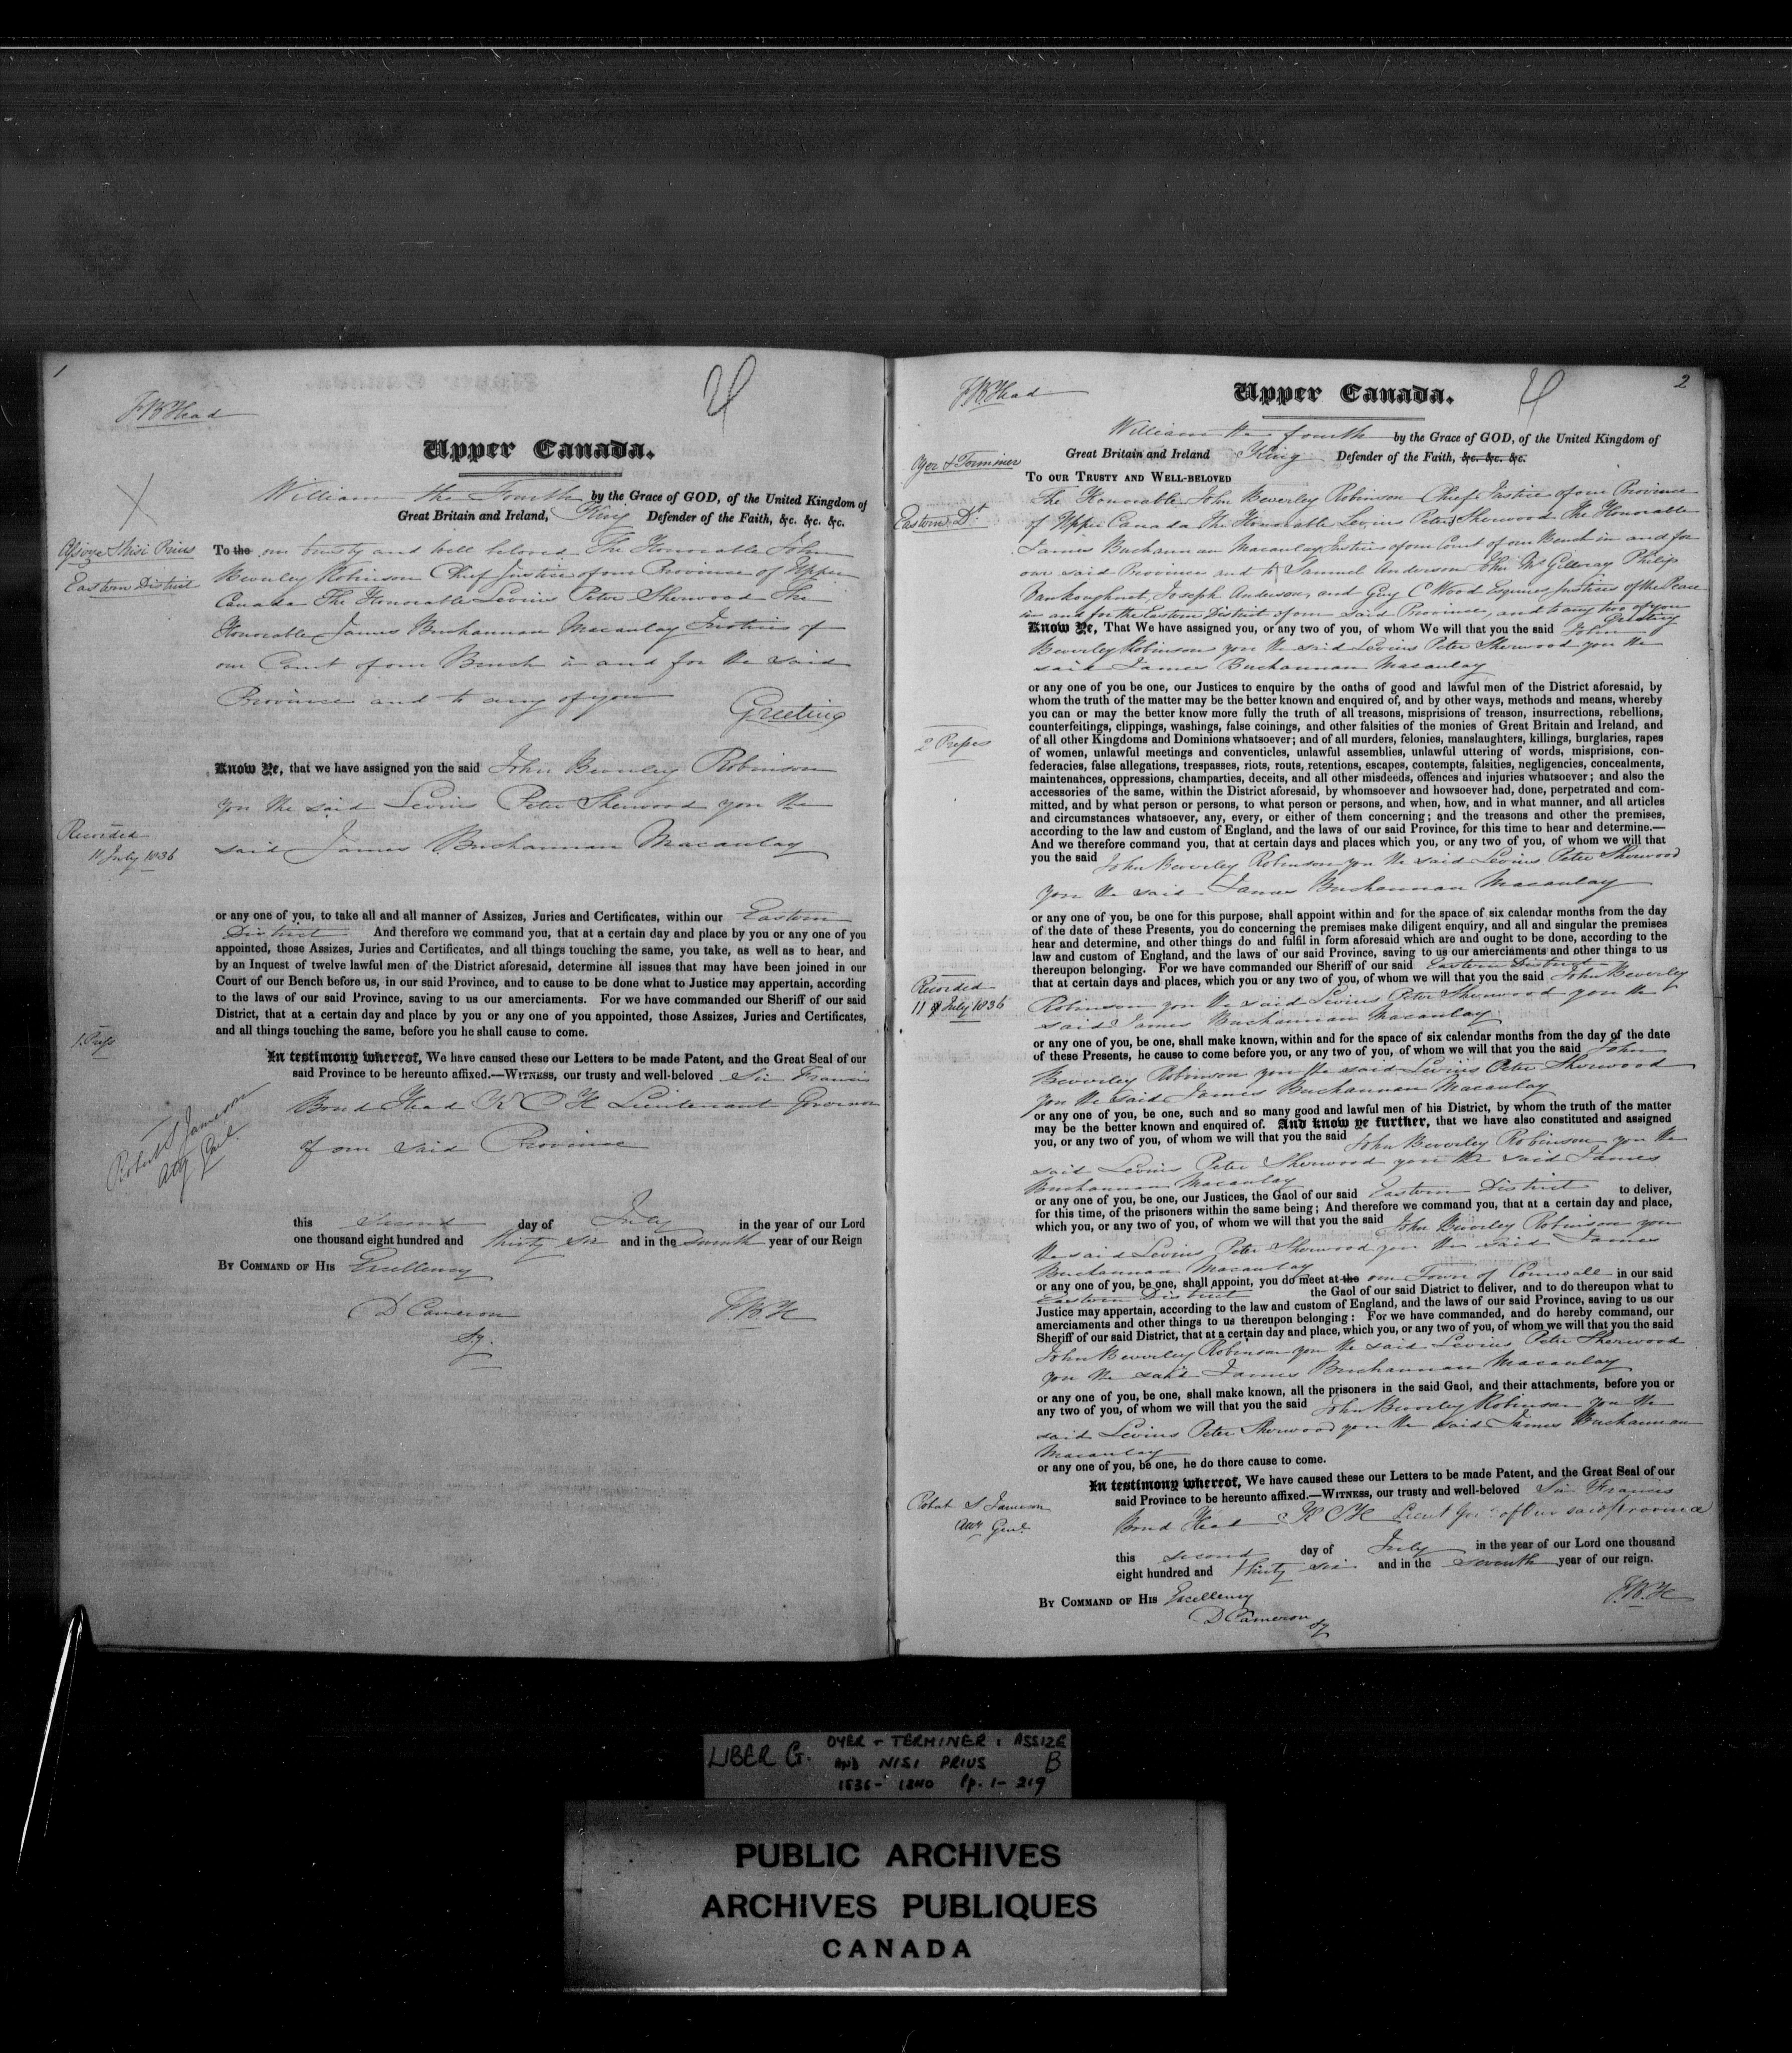 1
F B Head
Upper Canada.
William the Fourth by the Grace of GOD, of the United Kingdom of
Great Britain and Ireland, King Defender of the Faith, &c. &c. &c.
Assize & Nisi Prius
Eastern District
To the our trusty and well beloved The Honorable John
Beverley Robinson Chief Justice of our Province of Upper
Canada The Honorable Levius Peter Sherwood The
Honorable James Buchannan Macaulay Justices of
our Court of our Bench in and for the said
Province and to any of you
Greeting
Know Ye, that we have assigned you the said John Beverley Robinson
you the said Levius Peter Sherwood you the
said James Buchannan Macaulay
Recorded
11 July 1836
or any one of you, to take all and all manner of Assizes, Juries and Certificates, within our Eastern
District And therefore we command you, that at a certain day and place by you or any one of you
appointed, those Assizes, Juries and Certificates, and all things touching the same, you take, as well as to hear, and
by an Inquest of twelve lawful men of the District aforesaid, determine all issues that may have been joined in our
Court of our Bench before us, in our said Province, and to cause to be done what to Justice may appertain, according
to the laws of our said Province, saving to us our amerciaments. For we have commanded our Sheriff of our said
District, that at a certain day and place by you or any one of you appointed, those Assizes, Juries and Certificates,
and all things touching the same, before you he shall cause to come.
In testimony whereof, We have caused these our Letters to be made Patent, and the Great Seal of our
said Province to be hereunto affixed.—WITNESS, our trusty and well-beloved Sir Francis
Bond Head K C H Lieutenant Governor
of our said Province
Robert S Jameson
Atty Genl
this second day of July in the year of our Lord
one thousand eight hundred and thirty six and in the seventh year of our Reign
BY COMMAND OF HIS Excellency
D Cameron
Sy.
F.B.H
2
F B Head
Upper Canada.
William the fourth by the Grace of GOD, of the United Kingdom of
Great Britain and Ireland King Defender of the Faith, &c. &c. &c.
Oyer & Terminer
Eastern Dt.
TO OUR TRUSTY AND WELL-BELOVED
The Honorable John Beverley Robinson Chief Justice of our Province
of Upper Canada The Honorable Levius Peter Sherwood The Honorable
James Buchannan Macaulay Justices of our Court of our Bench in and for
our said Province and to Samuel Anderson John McGilleray Philip
Vankoughnet, Joseph Anderson, and Guy C Wood Esquires Justices of the Peace
in and for the Eastern District of our said Province, and to any two of you
Greeting
Know Ye, That We have assigned you, or any two of you, of whom We will that you the said John
Beverley Robinson you the said Levius Peter Sherwood you the
said James Buchannan Macaulay
or any one of you be one, our Justices to enquire by the oaths of good and lawful men of the District aforesaid, by
whom the truth of the matter may be the better known and enquired of, and by other ways, methods and means, whereby
you can or may the better know more fully the truth of all treasons, misprisions of treason, insurrections, rebellions,
counterfeitings, clippings, washings, false coinings, and other falsities of the monies of Great Britain and Ireland, and
of all other Kingdoms and Dominions whatsoever; and of all murders, felonies, manslaughters, killings, burglaries, rapes
of women, unlawful meetings and conventicles, unlawful assemblies, unlawful uttering of words, misprisions, con-
federacies, false allegations, trespasses, riots, routs, retentions, escapes, contempts, falsities, negligencies, concealments,
maintenances, oppressions, champarties, deceits, and all other misdeeds, offences and injuries whatsoever; and also the
accessories of the same, within the District aforesaid, by whomsoever and howsoever had, done, perpetrated and com-
mitted, and by what person or persons, to what person or persons, and when, how, and in what manner, and all articles
and circumstances whatsoever, any, every, or either of them concerning; and the treasons and other the premises,
according to the law and custom of England, and the laws of our said Province, for this time to hear and determine.—
And we therefore command you, that at certain days and places which you, or any two of you, of whom we will that
you the said John Beverley Robinson you the said Levius Peter Sherwood
you the said James Buchannan Macaulay
or any one of you, be one for this purpose, shall appoint within and for the space of six calendar months from the day
of the date of these Presents, you do concerning the premises make diligent enquiry, and all and singular the premises
hear and determine, and other things do and fulfil in form aforesaid which are and ought to be done, according to the
law and custom of England, and the laws of our said Province, saving to us our amerciaments and other things to us
thereupon belonging. For we have commanded our Sheriff of our said Eastern District
that at certain days and places, which you, or any two of you, of whom we will that you the said John Beverley
Recorded
11 July 1836
Robinson you the said Levius Peter Sherwood you the
said James Buchannan Macaulay
or any one of you, be one, shall make known, within and for the space of six calendar months from the day of the date
of these Presents, he cause to come before you, or any two of you, of whom we will that you the said John
Beverley Robinson you the said Levius Peter Sherwood
you the said James Buchannan Macaulay
or any one of you, be one, such and so many good and lawful men of his District, by whom the truth of the matter
may be the better known and enquired of. And know ye further, that we have also constituted and assigned
you, or any two of you, of whom we will that you the said John Beverley Robinson you the
said Levius Peter Sherwood you the said James
Buchannan Macaulay
or any one of you, be one, our Justices, the Gaol of our said Eastern District to deliver,
for this time, of the prisoners within the same being; And therefore we command you, that at a certain day and place,
which you, or any two of you, of whom we will that you the said John Beverley Robinson you
the said Levius Peter Sherwood you the said James
Buchannan Macaulay
or any one of you, be one, shall appoint, you do meet at the our Town of Cornwall in our said
Eastern District the Gaol of our said District to deliver, and to do thereupon what to
Justice may appertain, according to the law and custom of England, and the laws of our said Province, saving to us our
amerciaments and other things to us thereupon belonging: For we have commanded, and do hereby command, our
Sheriff of our said District, that at a certain day and place, which you, or any two of you, of whom we will that you the said
John Beverley Robinson you the said Levius Peter Sherwood
you the said James Buchannan Macaulay
or any one of you, be one, shall make known, all the prisoners in the said Gaol, and their attachments, before you or
any two of you, of whom we will that you the said John Beverley Robinson you the
said Levius Peter Sherwood you the said James Buchannan
Macaulay
or any one of you, be one, he do there cause to come.
In testimony whereof, We have caused these our Letters to be made Patent, and the Great Seal of our
said Province to be hereunto affixed.—WITNESS, our trusty and well-beloved Sir Francis
Bond Head K C H Lieut Gov. of Our said Province
Robert S Jameson
Atty Genl
this second day of July in the year of our Lord one thousand
eight hundred and thirty six and in the seventh year of our reign.
BY COMMAND OF HIS Excellency
D Cameron
Sy
F.B.H
LIBER G. OYER - TERMINER : ASSIZE
AND NISI PRIUS B
1836 - 1840 Pp. 1 - 219
PUBLIC ARCHIVES
ARCHIVES PUBLIQUES
CANADA